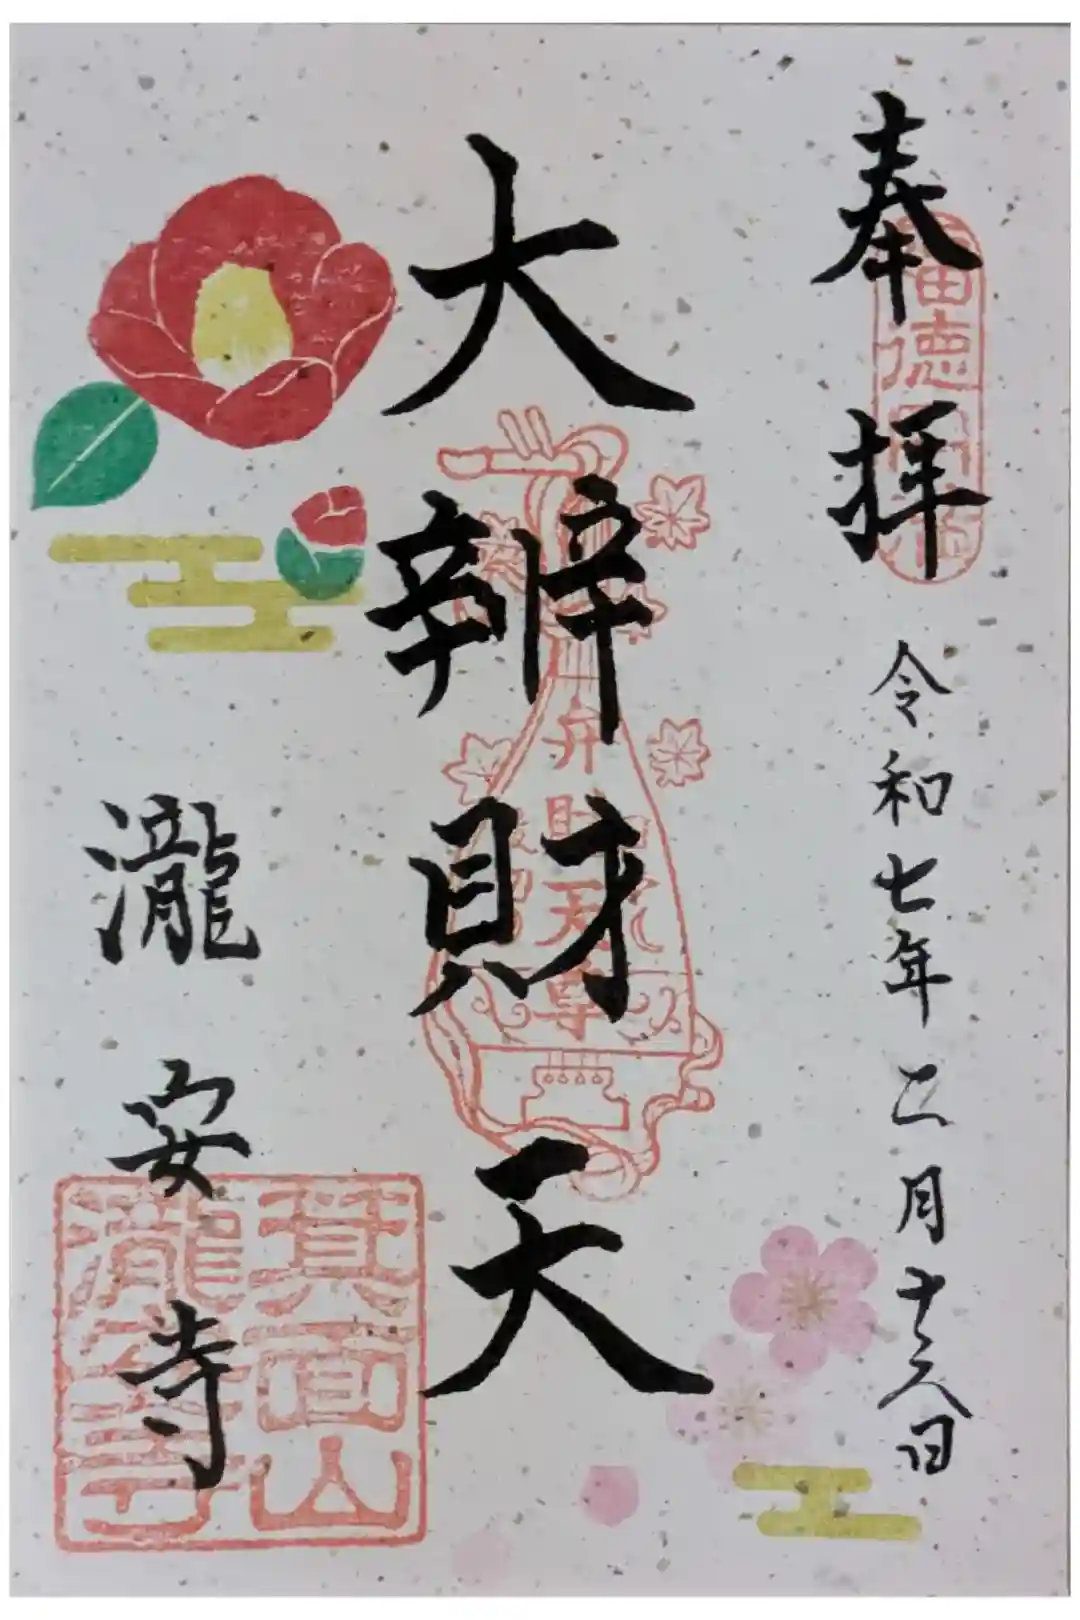 奉拝
令和七年二月十六日
大辨財天
弁財天尊
瀧安寺
箕面山
瀧安寺